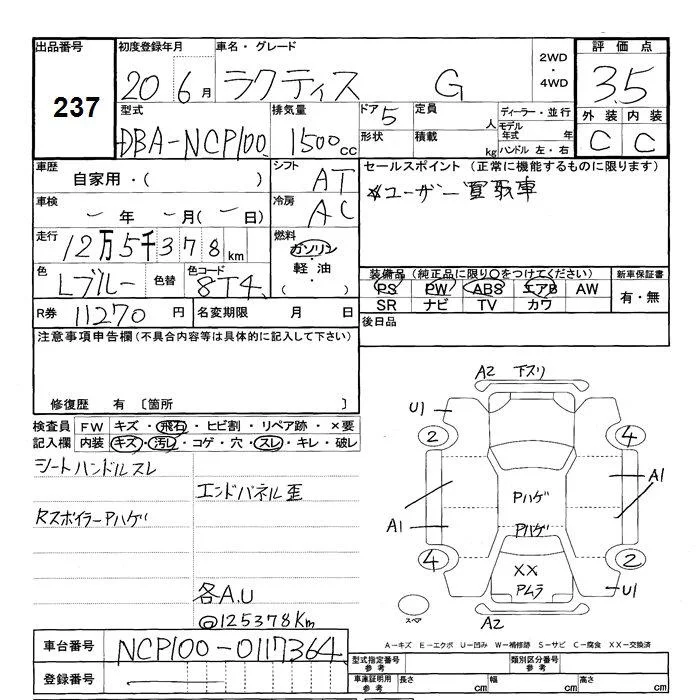 出品番号
237
初度登録年月
20 6 月
車名・グレード
ラクティス G
2WD
・
4WD
評価点
3.5
外装 内装
C C
型式
DBA-NCP100
排気量
1500 cc
ドア 5
形状
定員 人
積載 kg
ディーラー・並行
モデル年式 年
ハンドル 左・右
車歴
自家用・( )
シフト
AT
車検
ー 年 ー 月(ー日)
冷房
AC
走行
12万5千378 km
燃料
ガソリン
・
軽油
・
( )
色
Lブルー
色替
色コード
8T4
R券 11270 円
名変期限 月 日
セールスポイント (正常に機能するものに限ります)
ユーザー買取車
装備品(純正品に限り○をつけてください)
PS PW ABS エアB AW
SR ナビ TV カワ
新車保証書
有・無
後日品
注意事項申告欄(不具合内容等は具体的に記入して下さい)
修復歴 有 〔箇所 〕
検査員記入欄
FW キズ・飛石・ヒビ割・リペア跡・×要
内装 キズ・汚レ・コゲ・穴・スレ・キレ・破レ
シートハンドルスレ
エンドパネル歪
RスポイラーPハゲ
各A.U
@125378Km
A2 下スリ
U1
2
4
A1
A1
Pハゲ
Pハゲ
4
2
XX
Pムラ
U1
A2
スペア
A－キズ E－エクボ U－凹み W－補修跡 S－サビ C－腐食 XX－交換済
車台番号 NCP100-0117364
登録番号
型式指定番号
参考
類別区分番号
参考
車庫証明用
参考
長さ cm
幅 cm
高さ cm